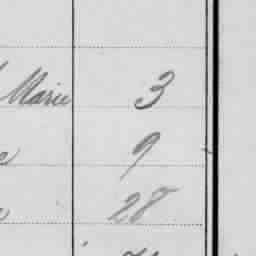 Marie 3
9
28